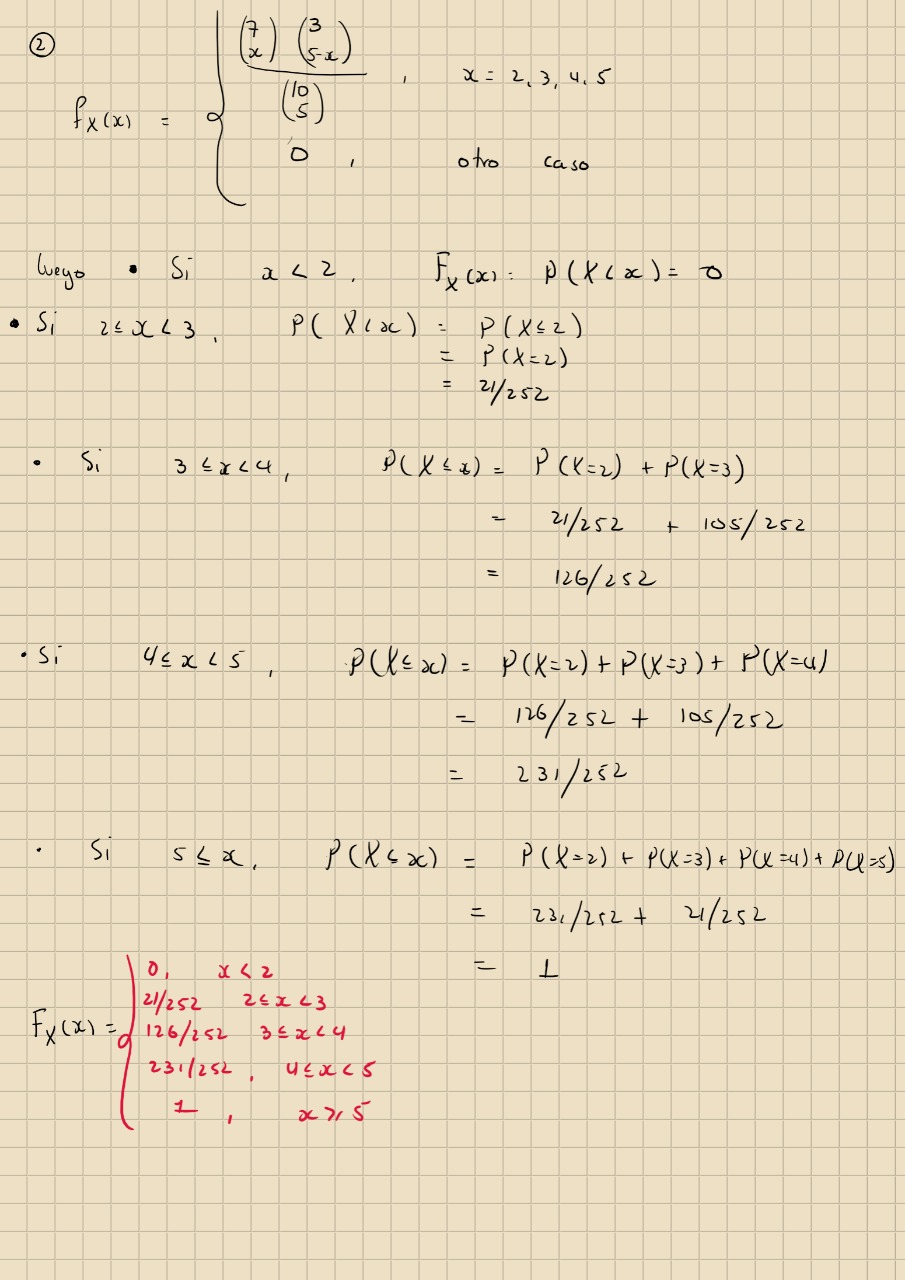 ②
f_X(x) = { (7 x) (3 5-x) / (10 5) , x = 2, 3, 4, 5
0 , otro caso
luego • Si x < 2 , F_X(x) = P(X < x) = 0
• Si 2 ≤ x < 3 , P(X < x) = P(X ≤ 2)
= P(X=2)
= 21/252
• Si 3 ≤ x < 4 , P(X ≤ x) = P(X=2) + P(X=3)
= 21/252 + 105/252
= 126/252
• Si 4 ≤ x < 5 , P(X ≤ x) = P(X=2) + P(X=3) + P(X=4)
= 126/252 + 105/252
= 231/252
• Si 5 ≤ x , P(X ≤ x) = P(X=2) + P(X=3) + P(X=4) + P(X=5)
= 231/252 + 21/252
= 1
F_X(x) = { 0 , x < 2
21/252 2 ≤ x < 3
126/252 3 ≤ x < 4
231/252 , 4 ≤ x < 5
1 , x ≥ 5